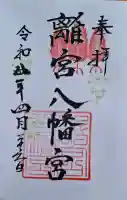 奉拝
離宮八幡宮
令和五年四月二十五日